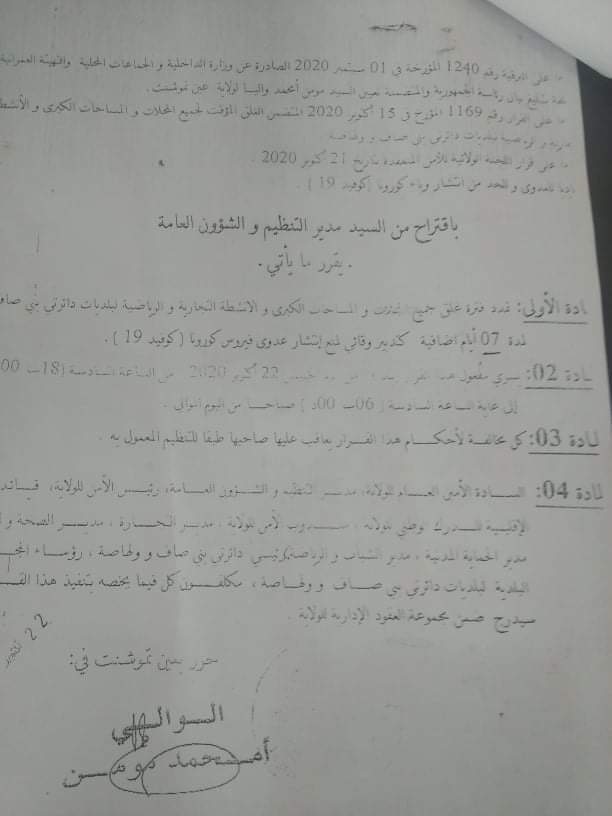 على البرقية رقم 1240 المؤرخة في 01 سبتمبر 2020 الصادرة عن وزارة الداخلية و الجماعات المحلية والتهيئة العمرانية
تبليغ بيان رئاسة الجمهورية والمتضمنة تعيين السيد مومن أمحمد واليا لولاية عين تموشنت.
على القرار رقم 1169 المؤرخ في 15 أكتوبر 2020 المتضمن الغلق المؤقت لجميع المحلات و المساحات الكبرى و الأنشطة
لبلديات دائرتي بني صاف و ولهاصة
على قرار اللجنة الولائية للأمن المنعقدة بتاريخ 21 أكتوبر 2020 .
للعدوى و للحد من انتشار وباء كورونا (كوفيد 19 ) .
باقتراح من السيد مدير التنظيم و الشؤون العامة
. يقرر ما يأتي .
ـادة الأولى: تمدد فترة غلق جميع المحلات و المساحات الكبرى و الأنشطة التجارية و الرياضية لبلديات دائرتي بني صاف
لمدة 07 أيام إضافية كتدبير وقائي لمنع إنتشار عدوى فيروس كورونا (كوفيد 19 ) .
ـادة 02: يسري مفعول هذا القرار 22 أكتوبر 2020 من الساعة السادسة (18سا 00
إلى غاية الساعة السادسة ( 06سا 00د ) صباحا من اليوم الموالي .
لمادة 03: كل مخالفة لأحكام هذا القرار يعاقب عليها صاحبها طبقا للتنظيم المعمول به .
لمادة 04: السادة الأمين العام للولاية، مدير التنظيم و الشؤون العامة، رئيس الأمن للولاية، قيادة
الإقليمية للدرك الوطني بالولاية ، مندوب الأمن للولاية ، مدير التجارة ، مدير الصحة و
مدير الحماية المدنية ، مدير الشباب و الرياضة، رئيسي دائرتي بني صاف و ولهاصة ، رؤساء المجـ
البلدية لبلديات دائرتي بني صاف و ولهاصة ، مكلفون كل فيما يخصه بتنفيذ هذا القـ
سيدرج ضمن مجموعة العقود الإدارية للولاية .
22 أكتوبر
حرر بعين تموشنت في:
الوالي
أمحمد مومن